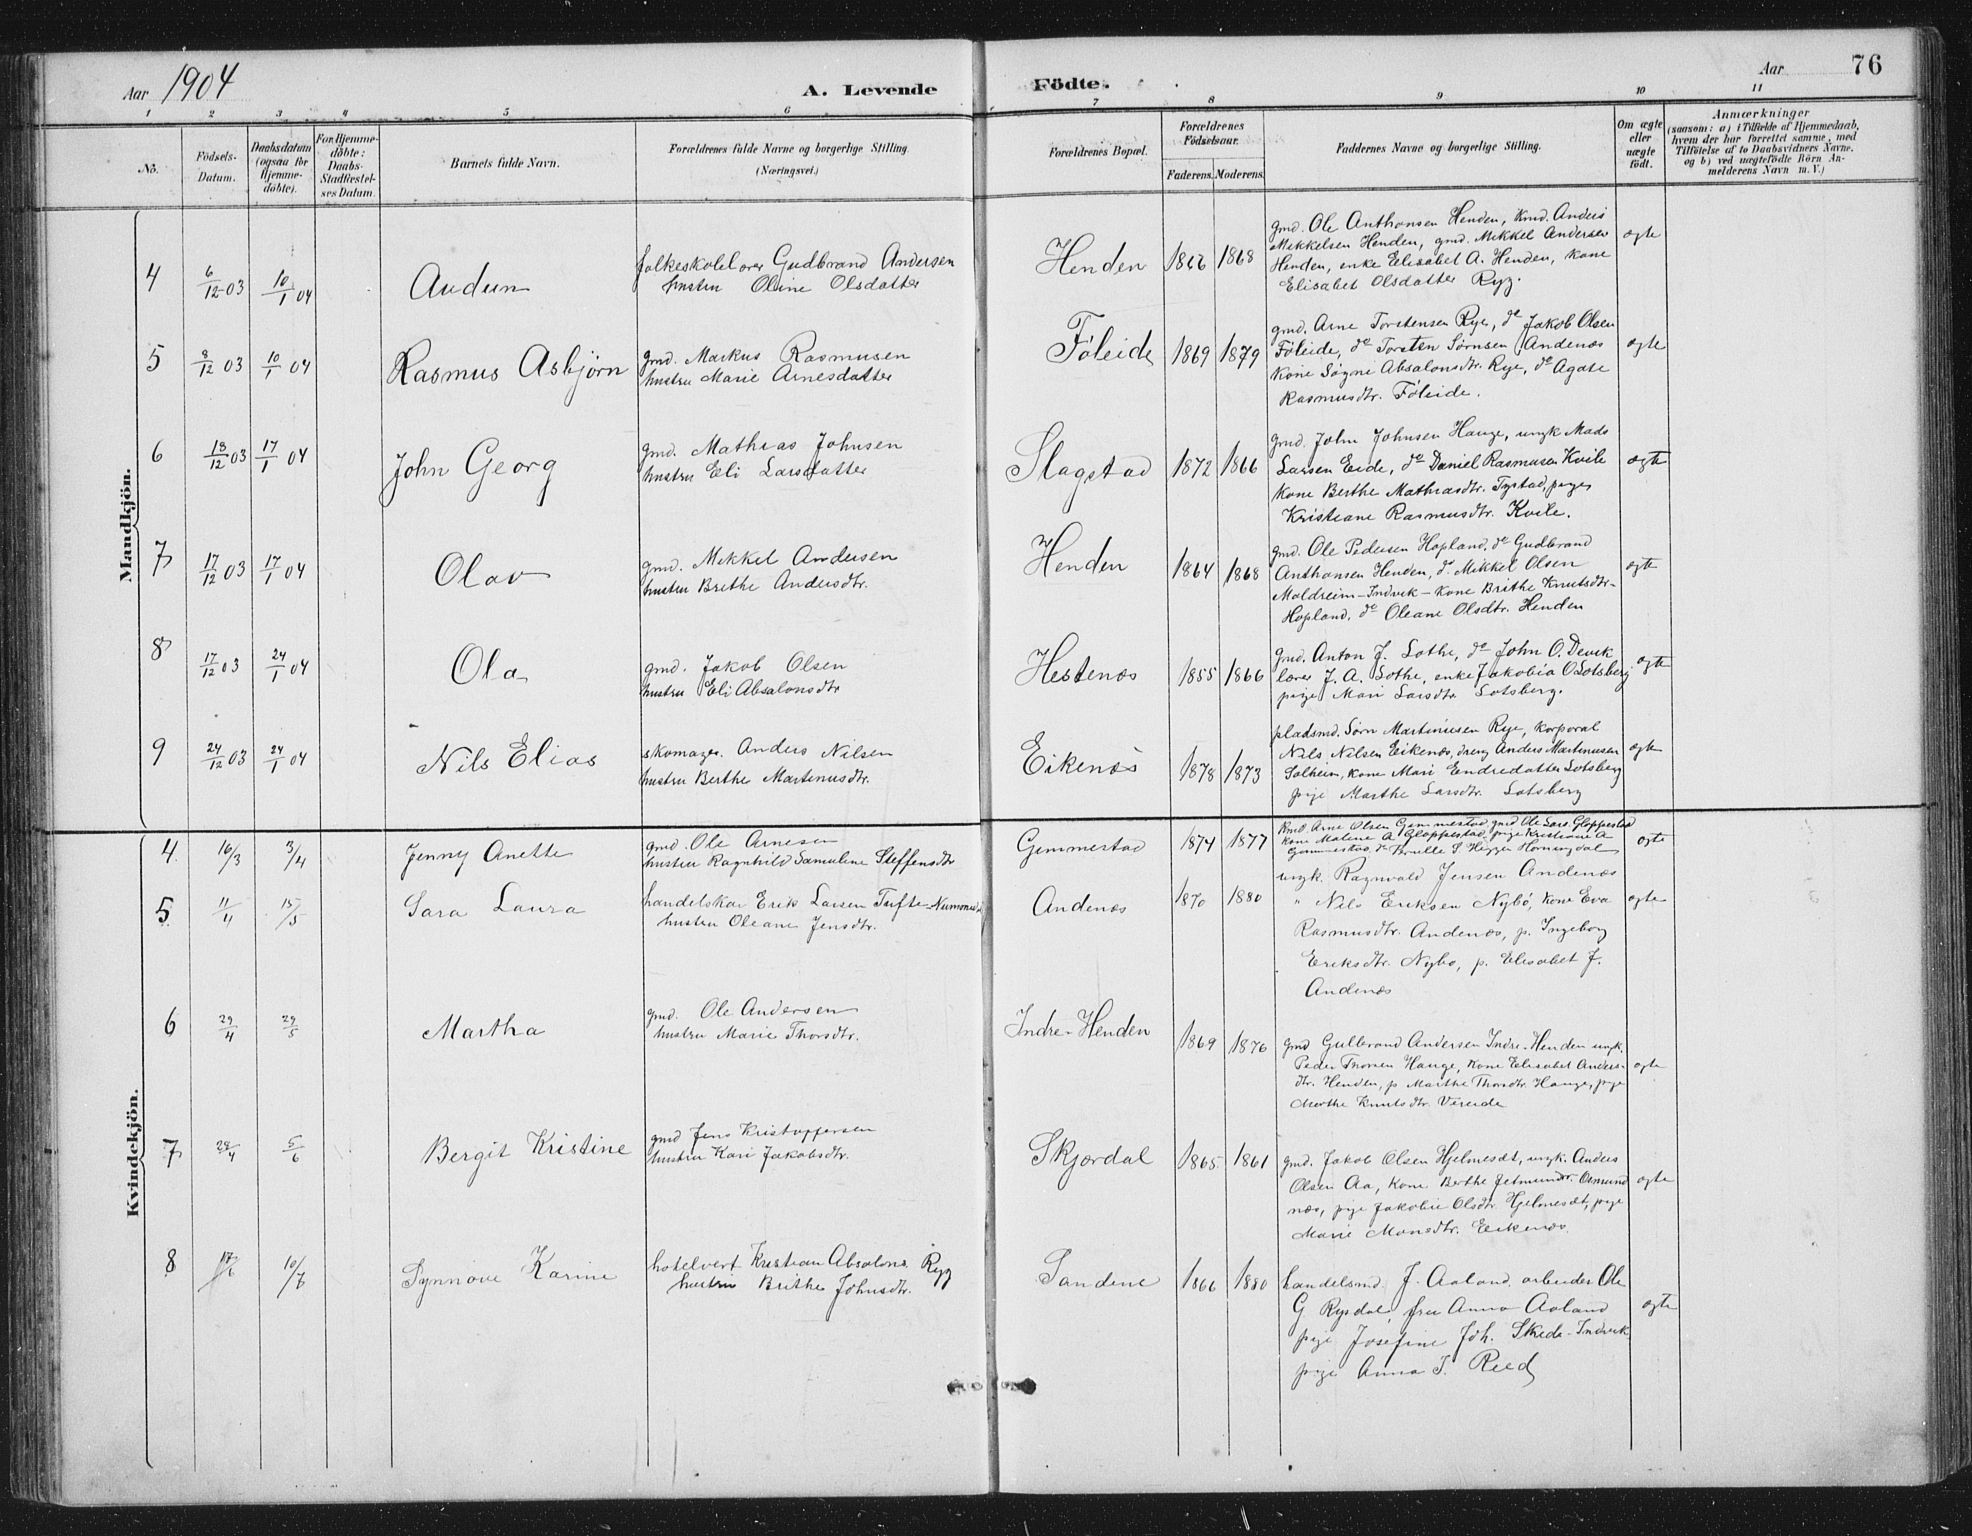 Aar 1904
A. Levende
Födte.
Aar
76
1 2 3 4 5 6 7 8 9 10 11
No.
Födsels-
Datum.
Daabsdatum
(ogsaa for
Hjemme-
döbte).
For Hjemme-
döbte:
Daabs-
Stadfæstel-
ses Datum.
Barnets fulde Navn.
Forældrenes fulde Navne og borgerlige Stilling
(Næringsvei.)
Forældrenes Bopæl.
Forældrenes
Födselsaar.
Faderens. Moderens.
Faddernes Navne og borgerlige Stilling.
Om ægte
eller
uægte
födt.
Anmærkninger
(saasom: a) i Tilfælde af Hjemmedaab,
hvem der har forrettet samme, med
Tilföielse af to Daabsvidners Navne.
og b) ved uægtefödte Börn An-
melderens Navn m. V.)
Mandkjön.
4
6/12 03
10/1 04
Audun
folkeskolelærer Gudbrand Andersen
hustru Oline Olsdatter
Henden
1866 1868
gmd. Ole Anthonsen Henden, kmd. Anders
Mikkelsen Henden, gmd. Mikkel Andersen
Henden, enke Elisabet A. Henden, kone
Elisabet Olsdatter Ryg.
ægte
5
8/12 03
10/1 04
Rasmus Asbjørn
gmd. Markus Rasmusen
hustru Marie Arnesdatter
Føleide
1869 1879
gmd. Arne Torstensen Rye, do Jakob Olsen
Føleide, do Torsten Sørnsen Andenæs
kone Søgne Absalonsdtr. Rye, do Agate
Rasmusdtr. Føleide.
ægte
6
18/12 03
17/1 04
John Georg
gmd. Mathias Johnsen
hustru Eli Larsdatter
Slagstad
1872 1866
gmd. John Johnsen Hauge, ungk Mads
Larsen Eide, do Daniel Rasmusen Kvile
kone Berthe Mathiasdtr. Tystad, pige
Kristiane Rasmusdtr. Kvile.
ægte
7
17/12 03
17/1 04
Olav
gmd. Mikkel Andersen
hustru Brethe Andersdtr.
Henden
1864 1868
gmd. Ole Pedersen Hopland, do Gudbrand
Anthonsen Henden, do Mikkel Olsen
Moldreim-Indvik- kone Brithe Knutsdtr-
Hopland, do Oleane Olsdtr. Henden
ægte
8
17/12 03
24/1 04
Ola
gmd. Jakob Olsen
hustru Eli Absalonsdtr
Hestenæs
1855 1866
gmd. Anton J. Lothe, do John O. Devik
lærer J. A. Lothe, enke Jakobia O Lotsberg
pige Mari Larsdtr Lotsberg.
ægte
9
24/12 03
24/1 04
Nils Elias
skomager. Anders Nilsen
hustru Berthe Martinusdtr.
Eikenæs
1878 1873
pladsmd. Sørn Martinusen Rye, korporal
Nils Nilsen Eikenæs, dreng Anders Martinusen
Solheim, kone Mari Endredatter Lotsberg
pige Marthe Larsdtr. Lotsberg
ægte
Kvindekjön.
4
16/3
3/4
Jenny Anette
gmd. Ole Arnesen
hustru Ragnhild Samuline Steffensdtr
Gemmestad
1874 1877
kmd. Arne Olsen Gemmestad, gmd Ole Lars. Gloppestad
kone Malene A Gloppestad, pige Kristiane A
Gemmestad, do Brulle S Higgen Hornindal
ægte
5
11/4
15/5
Sara Laura
handelskar Erik Larsen Tufte-
hustru Oleane Jensdtr.
Andenæs
1870 1880
ungk. Ragnvald Jensen Andenæs
" Nils Eriksen Nybø, kone Eva
Rasmusdtr. Andenæs, p. Ingeborg
Eriksdtr. Nybø, p. Elisabet J.
Andenæs
ægte
6
29/4
29/5
Martha
gmd. Ole Andersen
hustru Marie Thorsdtr.
Indre-Henden
1869 1876
gmd Gulbrand Andersen Indre-Henden ungk.
Peder Thorsen Hauge, kone Elisabet Anders-
dtr. Henden, p Marthe Thorsdtr. Hauge, pige
Marthe Knutsdtr. Vereide
ægte
7
28/4
5/6
Bergit Kristine
gmd Jens Kristoffersen
hustru Kari Jakobsdtr.
Skjærdal
1865 1861
gmd. Jakob Olsen Hjelmesæt, ungk. Anders
Olsen Aa, kone Berthe Jetmundr. Osmund
næs, pige Jakobie Olsdtr. Hjelmesæt, pige
Marie Monsdtr. Eikenæs.
ægte
8
17/6
10/7
Synnøve Karine
hotelvert Kristian Absalons. Ryg
hustru Brithe Johnsdtr.
Sandene
1866 1880
handelsmd. J. Aaland, arbeider Ole
G. Rysdal, fru Anna Aaland
pige Josefine Joh. Skeda-Indvik
pige Anna J. Reed
ægte